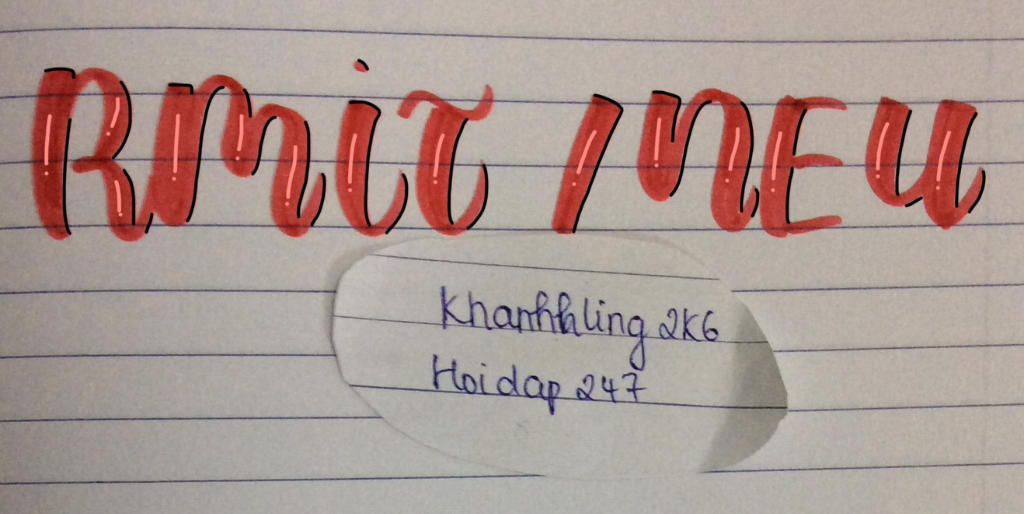 RMiT / NEU
Khanhhling 2K6
Hoidap 247